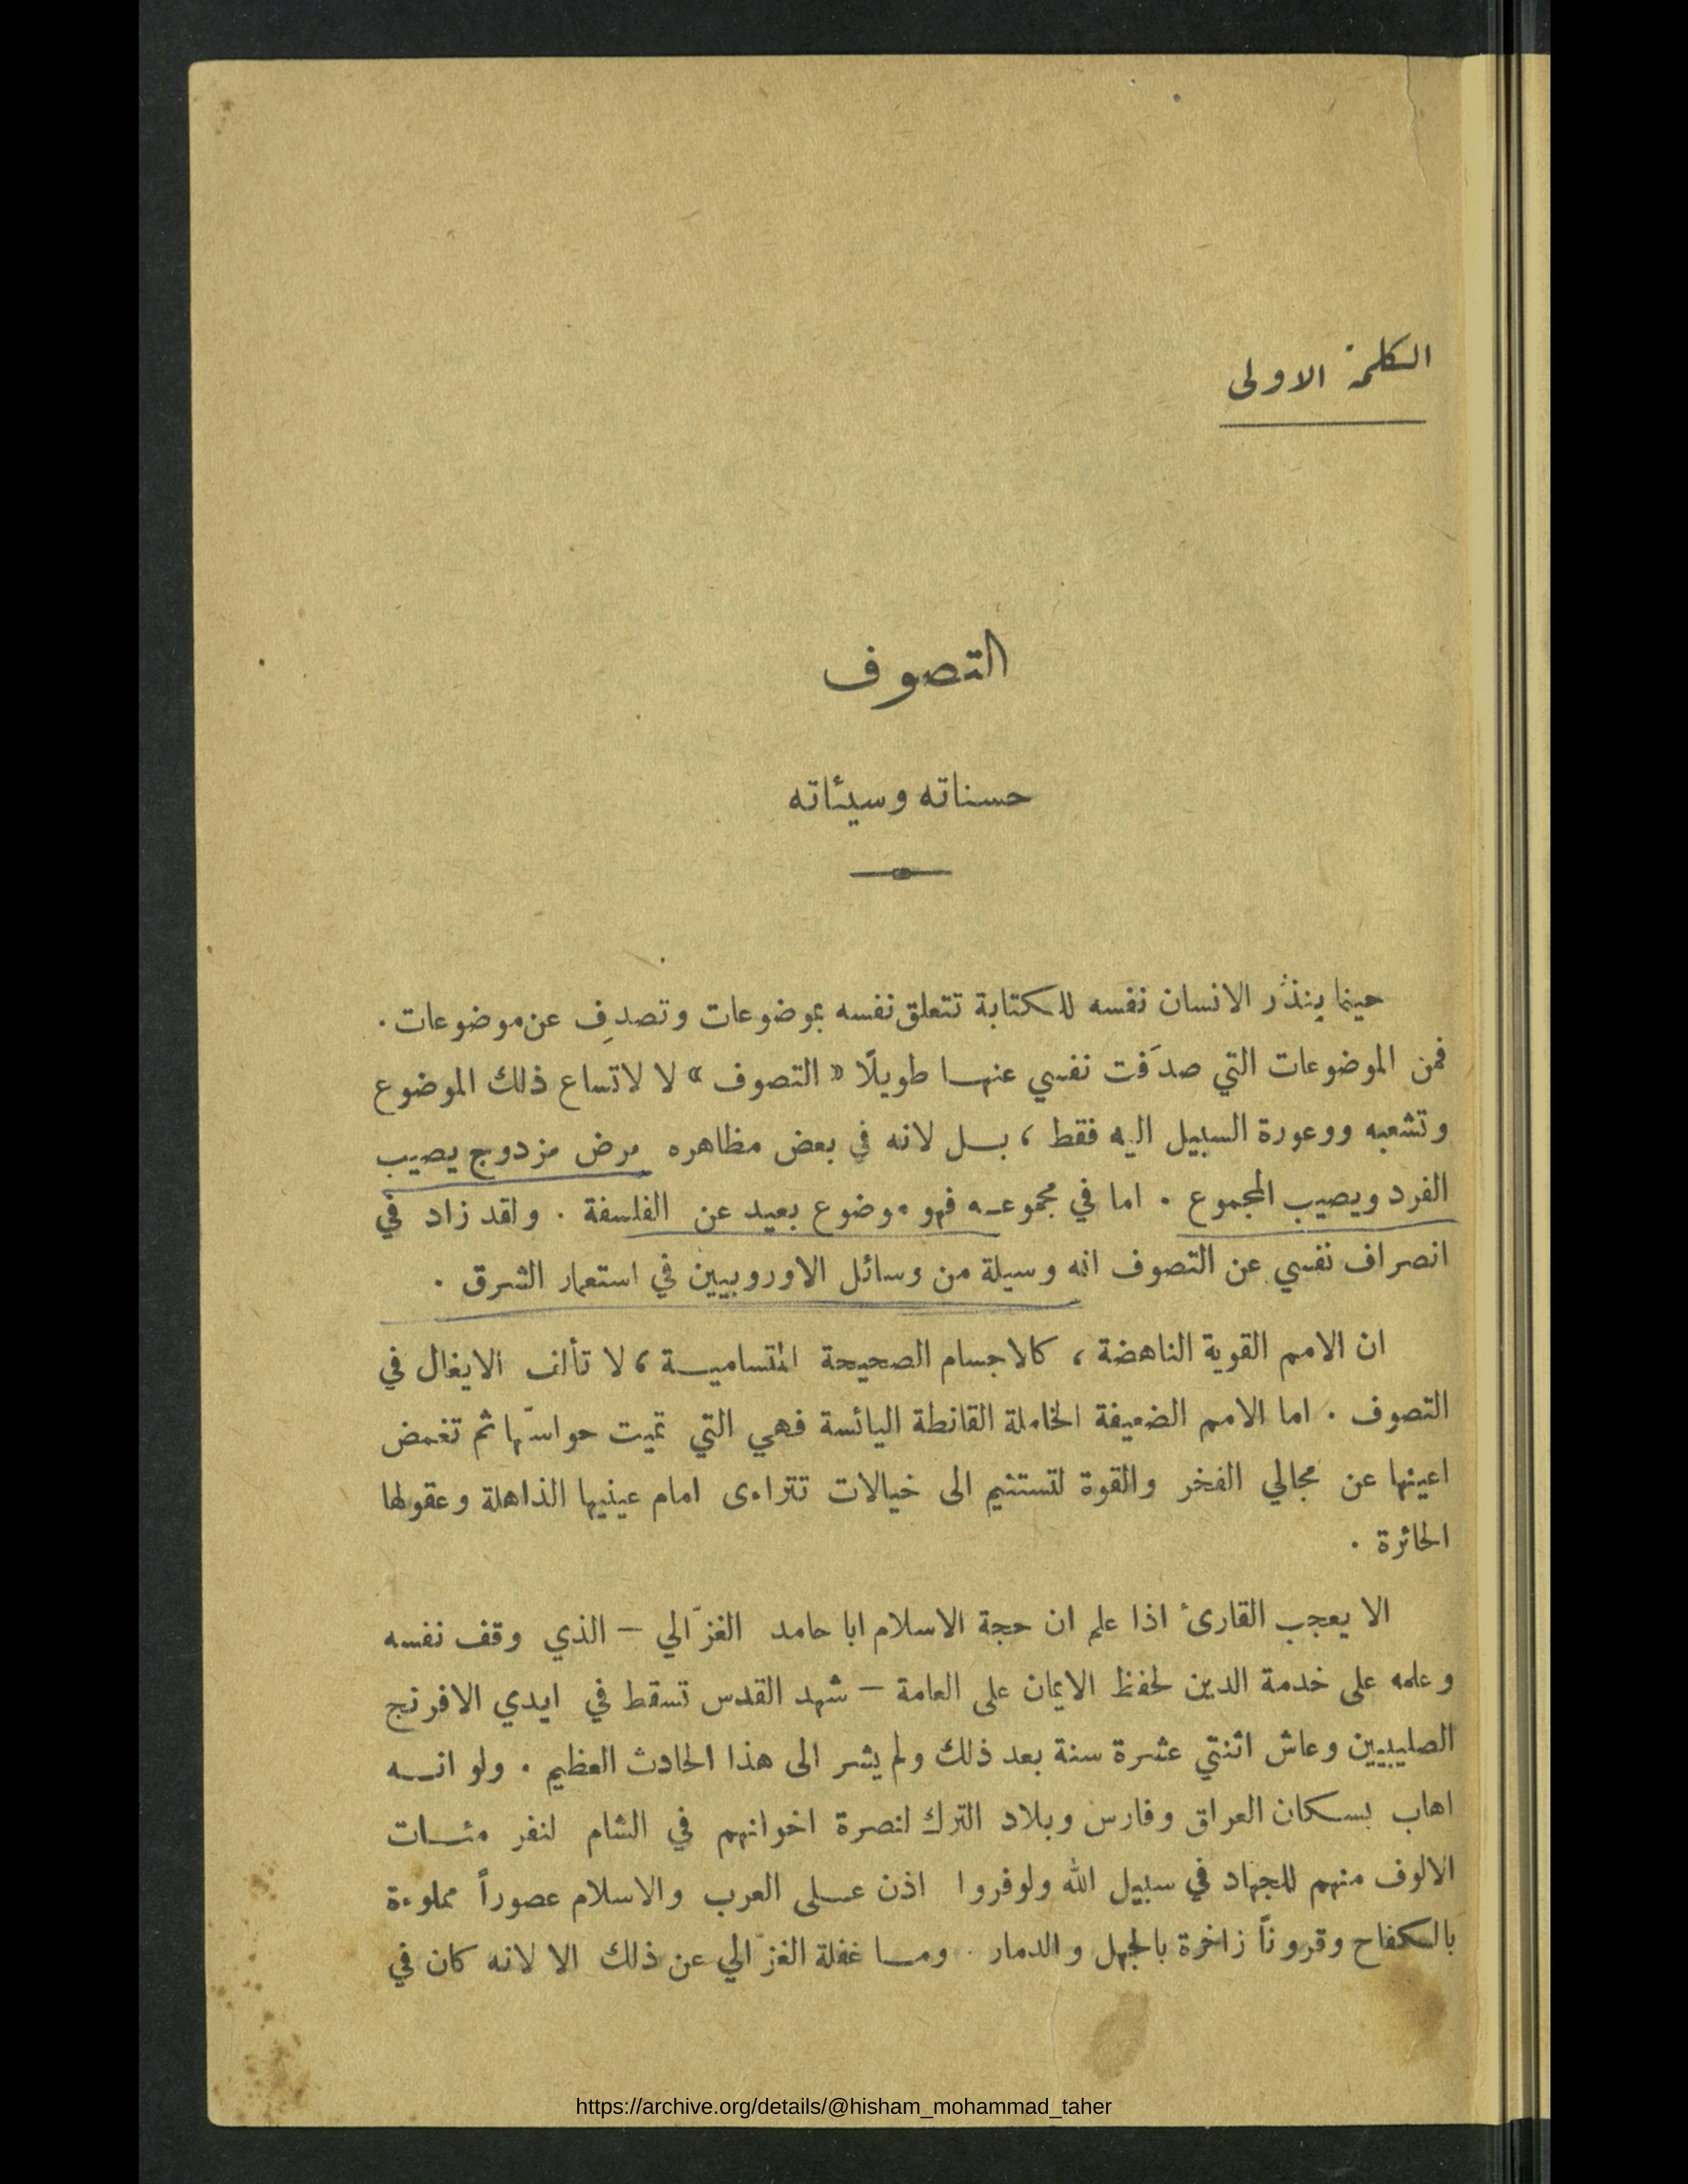 الكلمة الاولى
التصوف
حسناته وسيئاته
حينما ينذُر الانسان نفسه للكتابة تتعلق نفسه بموضوعات وتصدِف عن موضوعات .
فمن الموضوعات التي صدَفت نفسي عنها طويلًا « التصوف » لا لاتساع ذلك الموضوع
وتشعبه ووعورة السبيل اليه فقط ، بل لانه في بعض مظاهره مرض مزدوج يصيب
الفرد ويصيب المجموع . اما في مجموعه فهو موضوع بعيد عن الفلسفة . ولقد زاد في
انصراف نفسي عن التصوف انه وسيلة من وسائل الاوروبيين في استعمار الشرق .
ان الامم القوية الناهضة ، كالاجسام الصحيحة المتسامية ، لا تألف الايغال في
التصوف . اما الامم الضعيفة الخاملة القانطة اليائسة فهي التي تميت حواسّها ثم تغمض
اعينها عن مجالي الفخر والقوة لتستنيم الى خيالات تتراءى امام عينيها الذاهلة وعقولها
الحائرة .
الا يعجب القارئ اذا علم ان حجة الاسلام ابا حامد الغزّالي – الذي وقف نفسه
وعلمه على خدمة الدين لحفظ الايمان على العامة – شهد القدس تسقط في ايدي الافرنج
الصليبيين وعاش اثنتي عشرة سنة بعد ذلك ولم يشر الى هذا الحادث العظيم . ولو انه
اهاب بسكان العراق وفارس وبلاد الترك لنصرة اخوانهم في الشام لنفر مئات
الالوف منهم للجهاد في سبيل الله ولوفروا اذن على العرب والاسلام عصوراً مملوءة
بالكفاح وقروناً زاخرة بالجهل والدمار . وما غفلة الغزّالي عن ذلك الا لانه كان في
https://archive.org/details/@hisham_mohammad_taher